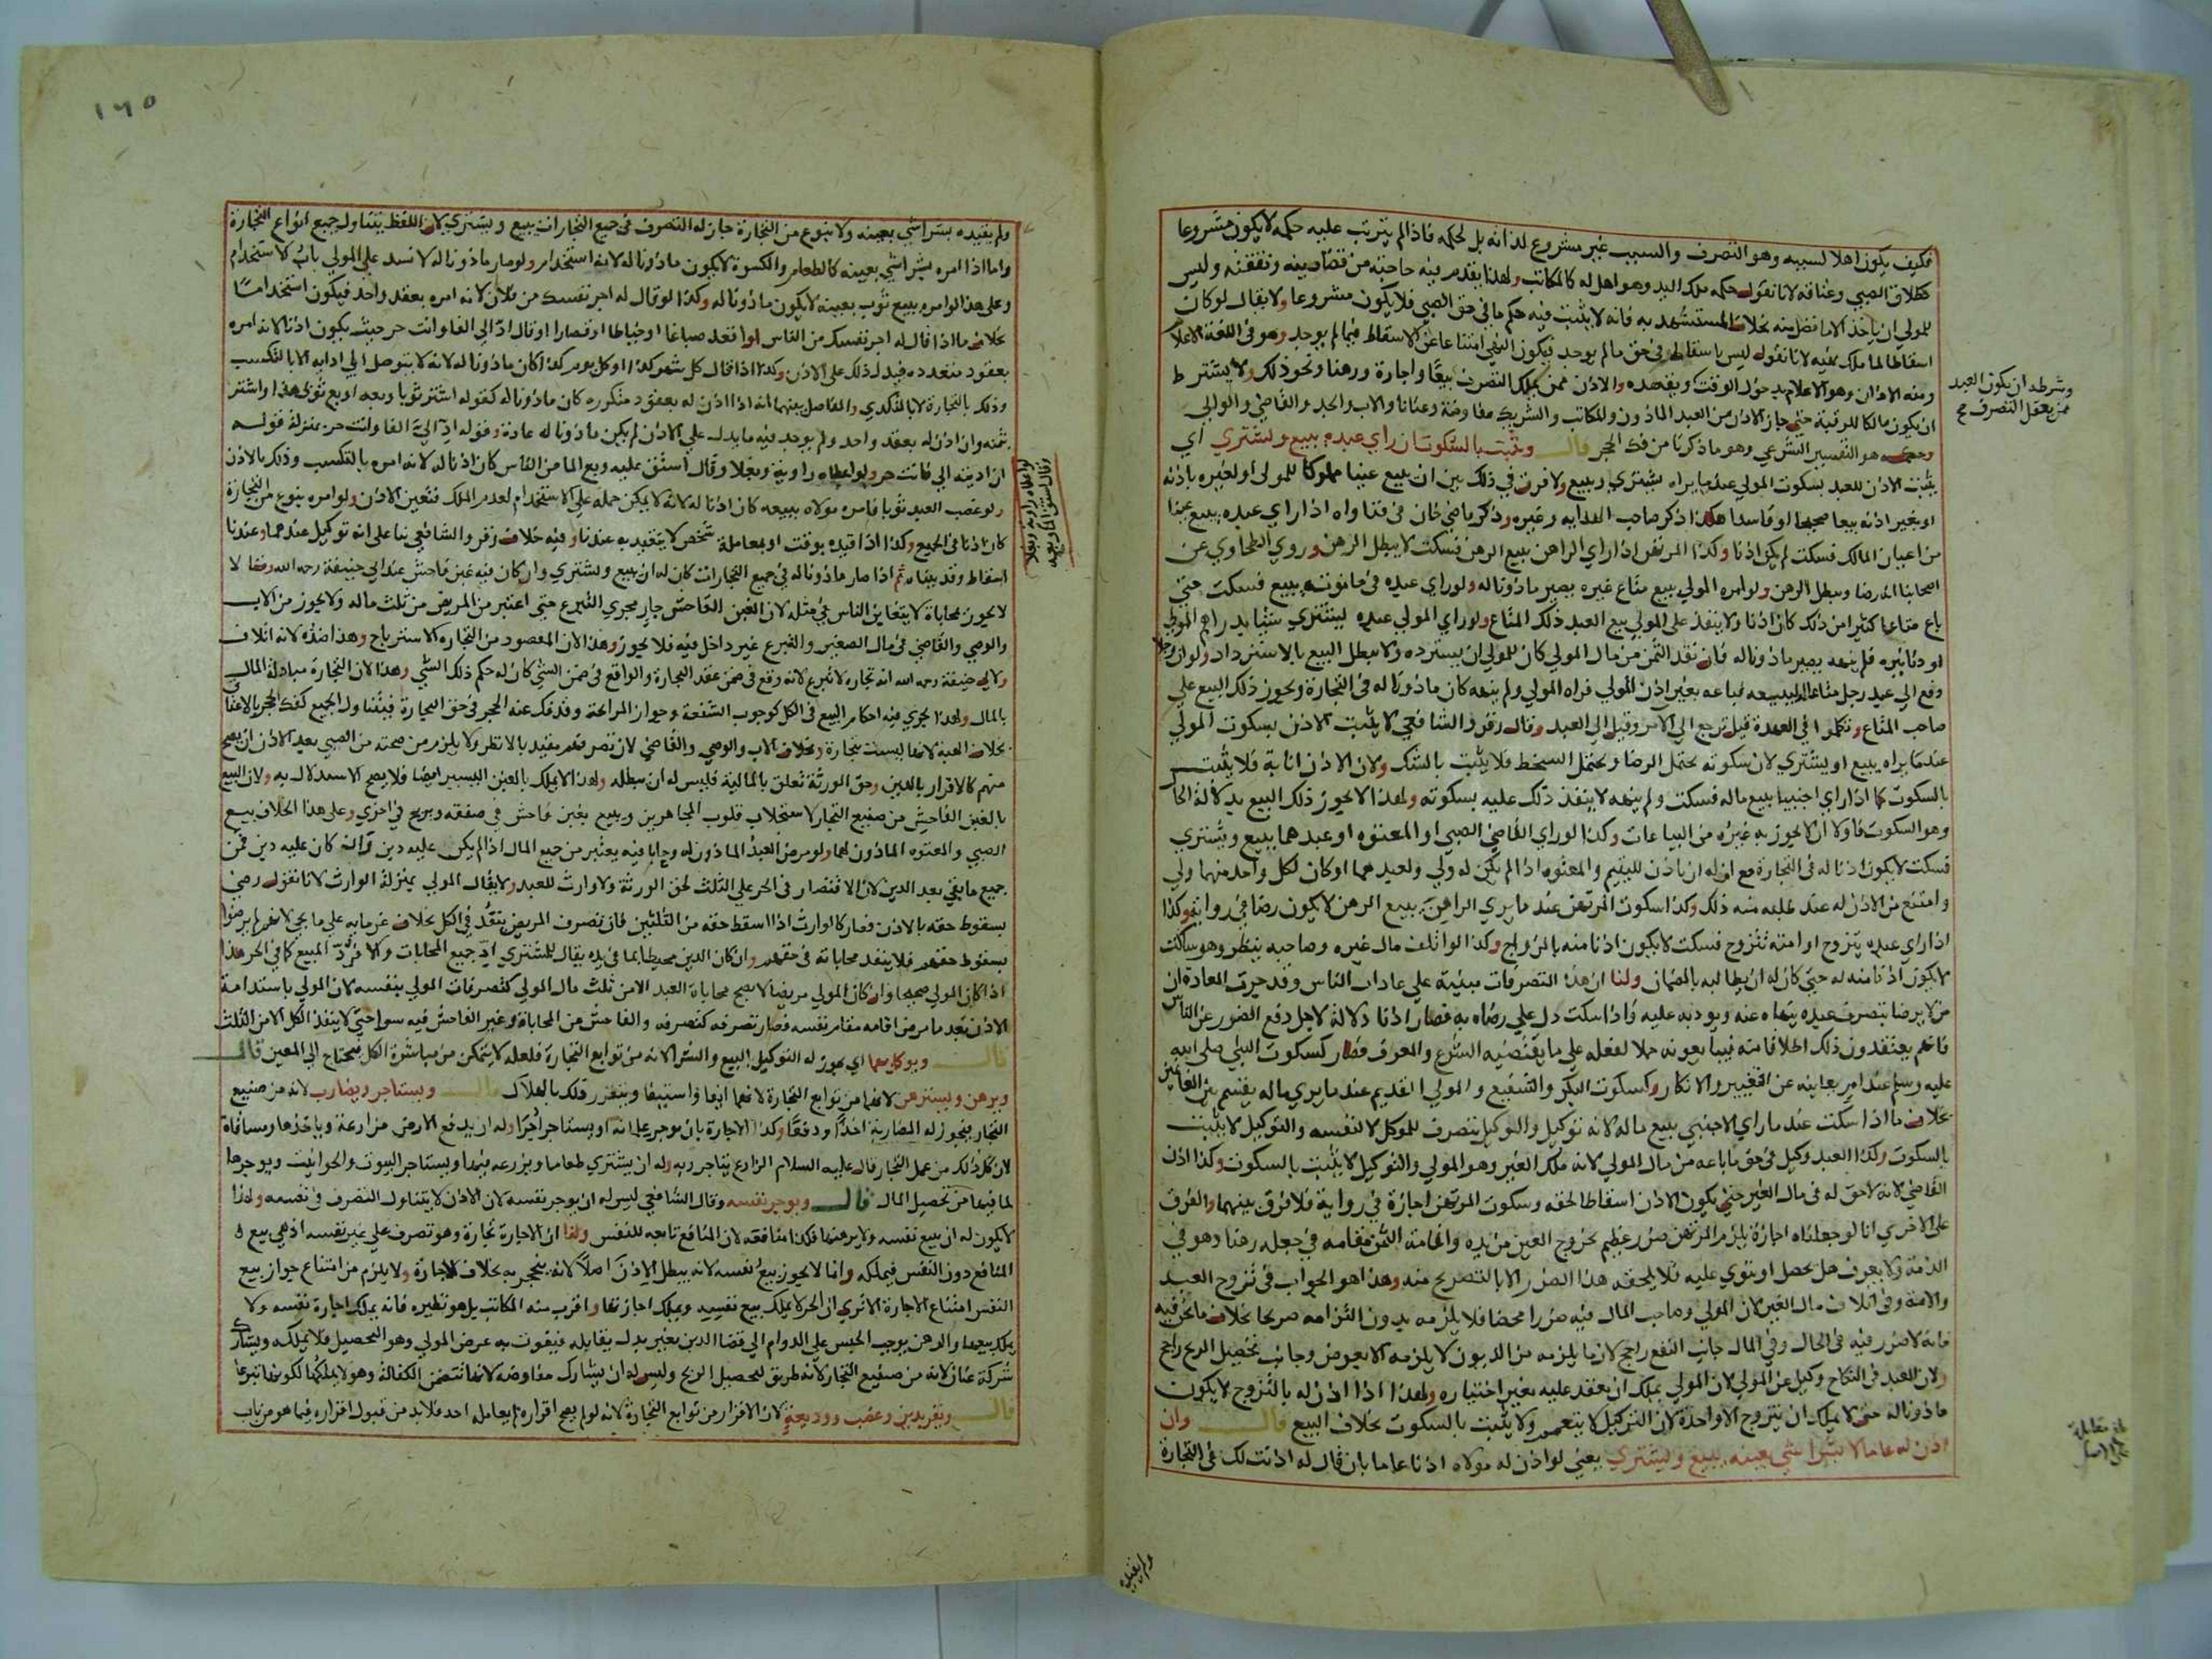 فكيف يكون اهلا لسببه وهو التصرف والسبب غير مشروع لذاته بل لحكمه فاذا لم يترتب عليه حكمه لا يكون مشروعا
كطلاق الصبي وعتاقه لانا نقول حكمه ملك اليد وهو اهل له كالمكاتب ولهذا يقدم فيه حاجته من قضا دينه ونفقته وليس
للمولي ان ياخذ الا ما فضل منه بخلاف المستشهد به فانه لا يثبت فيه حكم ما في حق الصبي فلا يكون مشروعا ولا يقال لو كان
اسقاطا لما ملك نهيه لانا نقول ليس باسقاط في حق ما لم يوجد فيكون النهي امتناعا عن الاسقاط فيما لم يوجد وهو في اللغة الاعلام
ومنه الاذان وهو الاعلام بدخول الوقت
ان يكون مالكا للرقبة حتي جاز الاذن من العبد الماذون والمكاتب والشريك مفاوضة وعنانا والاب والجد والقاضي والوالي
وحكمه هو التفسير الشرعي وهو ما ذكرنا من فك الحجر قال ويثبت بالسكوت ان راي عبده يبيع ويشتري اي
يثبت الاذن للعبد بسكوت المولي عند ما يراه يشتري ويبيع ولا فرق في ذلك بين ان يبيع عينا مملوكا للمولي او لغيره باذنه
او بغير اذنه بيعا صحيحا او فاسدا هكذا ذكر صاحب الهداية وغيره وذكر قاضي خان في فتاواه اذا راي عبده يبيع عينا
من اعيان المالك فسكت لم يكن اذنا وكذا المرتهن اذا راي الراهن يبيع الرهن فسكت لا يبطل الرهن وروي الطحاوي عن
اصحابنا انه رضا ويبطل الرهن ولو امره المولي ببيع متاع غيره يصير ماذونا له ولو راي عبده في حانوته يبيع فسكت حتي
باع متاعا كثيرا من ذلك كان اذنا ولا ينفذ علي المولي بيع العبد ذلك المتاع ولو راي المولي عبده ليشتري شيئا بدراهم المولي
او دنانيره فلم ينهه يصير ماذونا له فان نقد الثمن من مال المولي كان للمولي ان يسترده ولا يبطل البيع بالاسترداد ولو ان رجلا
دفع الي عبد رجل متاعا ليبيعه فباعه بغير اذن المولي فراه المولي ولم ينهه كان ماذونا له في التجارة ويجوز ذلك البيع علي
صاحب المتاع وتكلموا في العهدة قيل ترجع الي الآمر وقيل الي العبد وقال زفر والشافعي لا يثبت الاذن بسكوت المولي
عند ما يراه يبيع او يشتري لان سكوته يحتمل الرضا ويحتمل السخط فلا يثبت بالشك ولان الاذن انابة فلا يثبت
بالسكوت كما اذا راي اجنبيا يبيع ماله فسكت ولم ينهه لا ينفذ ذلك عليه بسكوته ولهذا لا يجوز ذلك البيع بدلالة الحال
وهو السكوت فاولا ان لا يجوز به غيره من البياعات وكذا لو راي القاضي الصبي او المعتوه او عبدهما يبيع ويشتري
فسكت لا يكون اذنا له في التجارة مع ان له ان ياذن لليتيم والمعتوه اذا لم يكن له ولي ولعبدهما او كان لكل واحد منهما ولي
وامتنع من الاذن له عند طلبه منه ذلك وكذا سكوت المرتهن عند ما يري الراهن يبيع الرهن لا يكون رضا في رواية وكذا
اذا راي عبده يتزوج او امته تتزوج فسكت لا يكون اذنا منه بالزواج وكذا لو اتلف مال غيره وصاحبه ينظر وهو ساكت
لا يكون اذنا منه له حتي كان له ان يطالبه بالضمان ولنا ان هذه التصرفات مبنية علي عادات الناس وقد جرت العادة ان
من لا يرضا بتصرف عبده ينهاه عنه ويودبه عليه فاذا سكت دل علي رضاه به فصار اذنا دلالة لاجل دفع الضرر عن الناس
فانهم يعتقدون ذلك اطلاقا منه فيبايعونه حملا لفعله علي ما يقتضيه الشرع والعرف فصار كسكوت النبي صلي الله
عليه وسلم عند امر يعاينه عن التغيير والانكار وكسكوت البكر والشفيع والمولي القديم عند ما يري ماله يقسم بين الغانمين
بخلاف ما اذا سكت عند ما راي الاجنبي يبيع ماله لانه توكيل والوكيل يتصرف للموكل لا لنفسه والتوكيل لا يثبت
بالسكوت وكذا العبد وكيل في حق ما باعه من مال المولي لانه ملك الغير وهو المولي والتوكيل لا يثبت بالسكوت وكذا اذن
القاضي لانه لا حق له في مال الغير حتي يكون الاذن اسقاطا لحقه وسكوت المرتهن اجازة في رواية فلا فرق بينهما والفرق
علي الاخري انا لو جعلناه اجازة يلزم المرتهن ضرر عظيم بخروج العين من يده واقامة الثمن مقامه في جعله رهنا وهو في
الذمة ولا يعرف هل يحصل او يتوي عليه فلا يلحقه هذا الضرر الا بالتصريح منه وهذا هو الجواب في تزوج العبد
والامة وفي اتلاف مال الغير لان المولي وصاحب المال فيه ضررا محضا فلا يلزمه بدون التزامه صريحا بخلاف ما نحن فيه
فانه لا ضرر فيه في الحال وفي المآل جانب النفع راجح لان ما يلزمه من الديون لا يلزمه الا بعوض وجانب تحصيل الربح راجح
ولان العبد في النكاح وكيل عن المولي لان المولي يملك ان يعقد عليه بغير اختياره ولهذا اذا اذن له بالتزوج لا يكون
ماذونا له حتي لا يملك ان يتزوج الا واحدة لان التوكيل لا يتعمم ولا يثبت بالسكوت بخلاف البيع قال وان
اذن له عاما لا بشرا شي بعينه يبيع ويشتري يعني لو اذن له مولاه اذنا عاما بان قال له اذنت لك في التجارة
وشرطه ان يكون العبد
ممن يعقل التصرف صح
ولم يقيده
١٦٥
ولم يقيده بشرا شي بعينه ولا بنوع من التجارة جاز له التصرف في جميع التجارات يبيع ويشتري لان اللفظ يتناول جميع انواع التجارة
واما اذا امره بشرا شي بعينه كالطعام والكسوة لا يكون ماذونا له لانه استخدام ولو صار ماذونا له لانسد علي المولي باب الاستخدام
وعلي هذا لو امره ببيع ثوب بعينه لا يكون ماذونا له وكذا لو قال له اجر نفسك من فلان لانه امره بعقد واحد فيكون استخداما
بخلاف ما اذا قال له اجر نفسك من الناس او اقعد صباغا او خياطا او قصارا او قال اد الي الفا وانت حر حيث يكون اذنا لانه امره
بعقود متعدده فيدل ذلك علي الاذن وكذا اذا قال كل شهر كذا او كل يوم كذا كان ماذونا له لانه لا يتوصل الي ادايه الا بالتكسب
وذلك بالتجارة لا بالتكدي والفاصل بينهما انه اذا اذن له بعقود متكرره كان ماذونا له كقوله اشتر ثوبا وبعه او بع ثوبي هذا واشتر
بثمنه وان اذن له بعقد واحد ولم يوجد فيه ما يدل علي الاذن لم يكن ماذونا له عادة وقوله اد الي الفا وانت حر بمنزلة قوله
ان اديته الي فانت حر ولو اعطاه راوية وبغلا وقال استق عليه وبع الما من الناس كان اذنا له لانه امره بالتكسب وذلك بالاذن
ولو غصب العبد ثوبا فامره مولاه ببيعه كان اذنا له لانه لا يمكن حمله علي الاستخدام لعدم الملك فتعين الاذن ولو امره بنوع من التجارة
كان اذنا في الجميع وكذا اذا قيده بوقت او بمعاملة شخص لا يتقيد به عندنا وفيه خلاف زفر والشافعي بنا علي انه توكيل عندهما وعندنا
اسقاط وقد بيناه ثم اذا صار ماذونا له في جميع التجارات كان له ان يبيع ويشتري وان كان فيه غبن فاحش عند ابي حنيفة رحمه الله وقالا لا
لا يجوز بمحاباة لا يتغابن الناس في مثله لان الغبن الفاحش جار مجري التبرع حتي اعتبر من المريض من ثلث ماله ولا يجوز من الاب
والوصي والقاضي في مال الصغير والتبرع غير داخل فيه فلا يجوز وهذا لان المقصود من التجاره الاسترباح وهذا ضده لانه اتلاف
ولابي حنيفة رحمه الله انه تجارة لا تبرع لانه وقع في ضمن عقد التجارة والواقع في ضمن الشي كان له حكم ذلك الشي وهذا لان التجارة مبادلة المال
بالمال ولهذا يجري فيه احكام البيع في الكل كوجوب الشفعة وجواز المرابحة وقد فك عنه الحجر في حق التجارة فيتناول الجميع كفك الحجر بالاعتاق
بخلاف الهبة لانها ليست تجارة وبخلاف الاب والوصي والقاضي لان تصرفهم مقيد بالانظر ولا يلزم من صحته من الصبي بعد الاذن ان يصح
منهم كالاقرار بالدين وحق الورثة تعلق بالمالية فليس له ان يبطله ولهذا لا يملك بالغبن اليسير ايضا فلا يصح الاستدلال به ولان البيع
بالغبن الفاحش من صنيع التجار لاستجلاب قلوب المجاهزين ويبيع بغبن فاحش في صفقه ويربح في اخري وعلي هذا الخلاف بيع
الصبي والمعتوه الماذون لهما ولو مرض العبد الماذون له وحابا فيه يعتبر من جميع المال اذا لم يكن عليه دين وان كان عليه دين فمن
جميع ما بقي بعد الدين لان الاقتصار في الحر علي الثلث لحق الورثة ولا وارث للعبد ولا يقال المولي بمنزلة الوارث لانا نقول رضي
بسقوط حقه بالاذن فصار كالوارث اذا اسقط حقه من الثلثين فان تصرف المريض ينفذ في الكل بخلاف غرمايه علي ما يجي لانهم لم يرضوا
بسقوط حقهم فلا ينفذ محاباته في حقهم وان كان الدين محيطا بما في يده يقال للمشتري اد جميع المحابات والا فرد المبيع كما في الحر هذا
اذا كان المولي صحيحا وان كان المولي مريضا لا يصح محاباة العبد الا من ثلث مال المولي كتصرفات المولي بنفسه لان المولي باستدامة
الاذن بعد ما مرض اقامه مقام نفسه فصار تصرفه كتصرفه والفاحش من المحاباة وغير الفاحش فيه سوا حتي لا ينفذ الكل الا من الثلث
قال ويوكل بهما اي يجوز له التوكيل بالبيع والشرا لانه من توابع التجارة فلعله لا يتمكن من مباشرة الكل فيحتاج الي المعين قال
ويرهن ويسترهن لانهما من توابع التجارة لانهما ايفا واستيفا ويتقرر ذلك بالهلاك قال ويستاجر ويضارب لانه من صنيع
التجار فيجوز له المضاربة اخذا ودفعا وكذا الاجارة بان يوجر غلمانه او يستاجر اجرا وله ان يدفع الارض مزارعة وياخذها ومساقاة
لان كل ذلك من عمل التجار قال عليه السلام الزارع يتاجر ربه وله ان يشتري طعاما ويزرعه فيها ويستاجر البيوت والحوانيت ويوجرها
لما فيها من تحصيل المال قال ويوجر نفسه وقال الشافعي ليس له ان يوجر نفسه لان الاذن لا يتناول التصرف في نفسه ولهذا
لا يكون له ان يبيع نفسه ولا يرهنها فكذا منافعه لان المنافع تابعه للنفس ولنا ان الاجارة تجارة وهو تصرف علي غير نفسه اذ هي بيع
المنافع دون النفس فيملكه وانما لا يجوز بيع نفسه لانه يبطل الاذن اصلا لانه ينحجر به بخلاف الاجارة ولا يلزم من امتناع جواز بيع
النفس امتناع الاجارة الا تري ان الحر لا يملك بيع نفسه ويملك اجارتها واقرب منه المكاتب بل هو نظيره فانه يملك اجارة نفسه ولا
يملك بيعها والرهن يوجب الحبس علي الدوام الي قضا الدين بغير بدل يقابله فيفوت به غرض المولي وهو التحصيل فلا يملكه ويشارك
شركة عنان لانه من صنيع التجار لانه طريق لتحصيل الربح وليس له ان يشارك مفاوضه لانها تتضمن الكفالة وهو لا يملكها لكونها تبرعا
قال ويقر بدين وغصب ووديعة لان الاقرار من توابع التجارة لانه لو لم يصح اقراره لم يعامله احد فلا بد من قبول اقراره فيما هو من باب